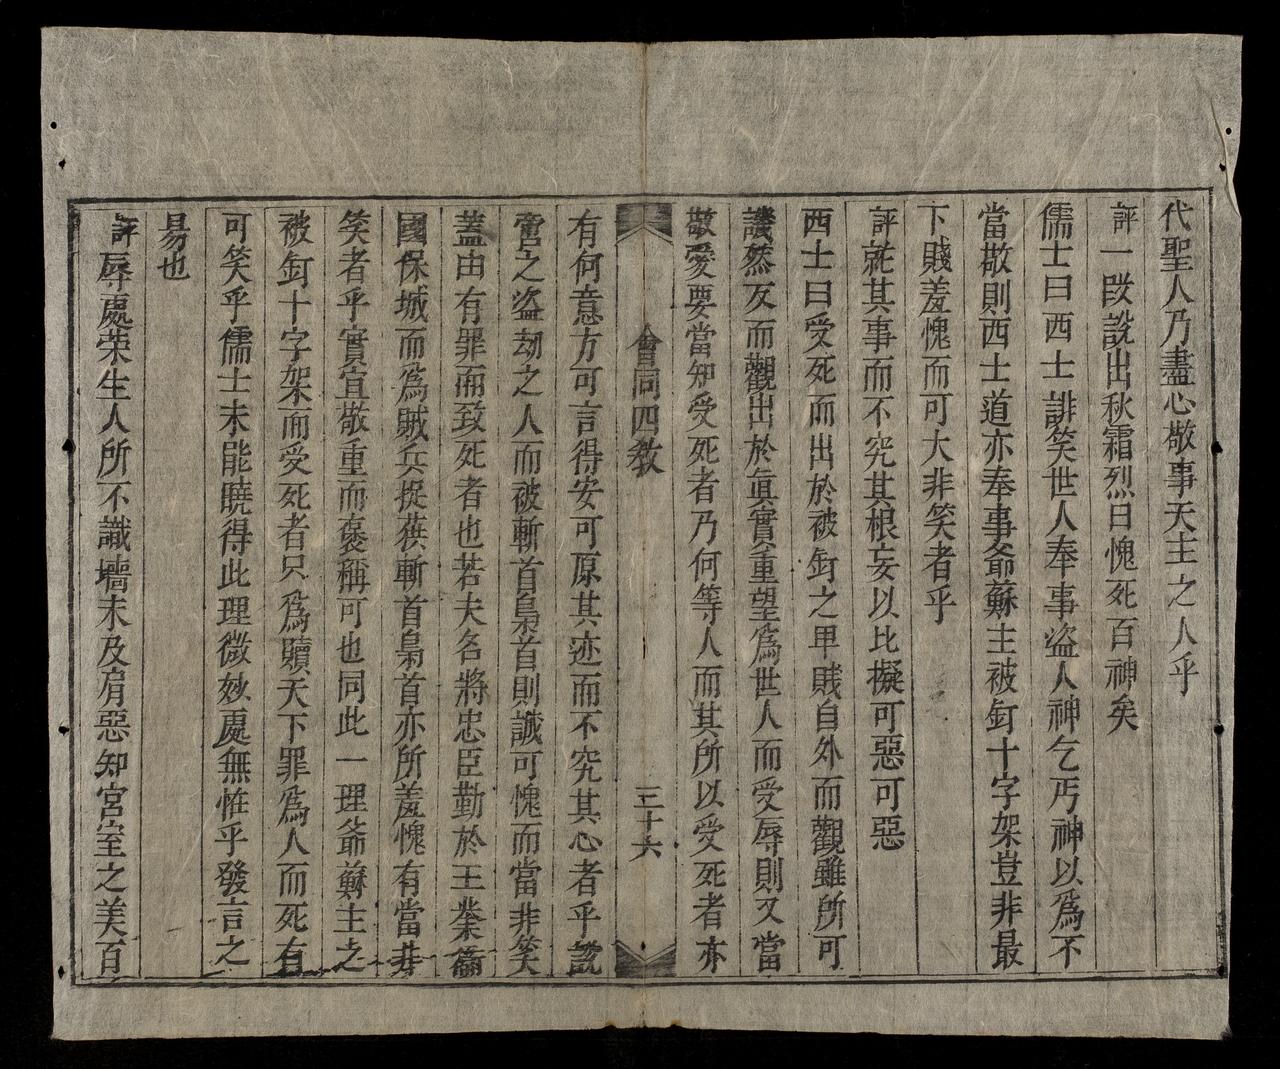 代聖人乃盡心敬事天主之人乎
評一段說出秋霜烈日愧死百神矣
儒士曰西士誹笑世人奉事盜人神乞丐神以爲不
當敬則西士道亦奉事爺蘇主被釘十字架豈非最
下賤羞愧而可大非笑者乎
評就其事而不究其根妄以比擬可惡可惡
西士曰受死而出於被釘之甲賎自外而觀雖所可
譏然反而觀出於眞實重望爲世人而受辱則又當
敬愛要當知受死者乃何等人而其所以受死者亦
會同四教
三十六
有何意方可言得安可原其迹而不究其心者乎說
𢾾之盜劫之人而被斬首梟首則誠可愧而當非笑
蓋由有罪而致死者也若夫名將忠臣勤於王業衞
國保城而爲賊兵捉獲斬首梟首亦所羞愧有當非
笑者乎實宜敬重而褒稱可也同此一理爺蘇主之
被釘十字架而受死者只爲贖天下罪爲人而死有
可笑乎儒士未能曉得此理微妙處無恠乎發言之
易也
評辱處荣生人所不識墻未及肩惡知宮室之美百